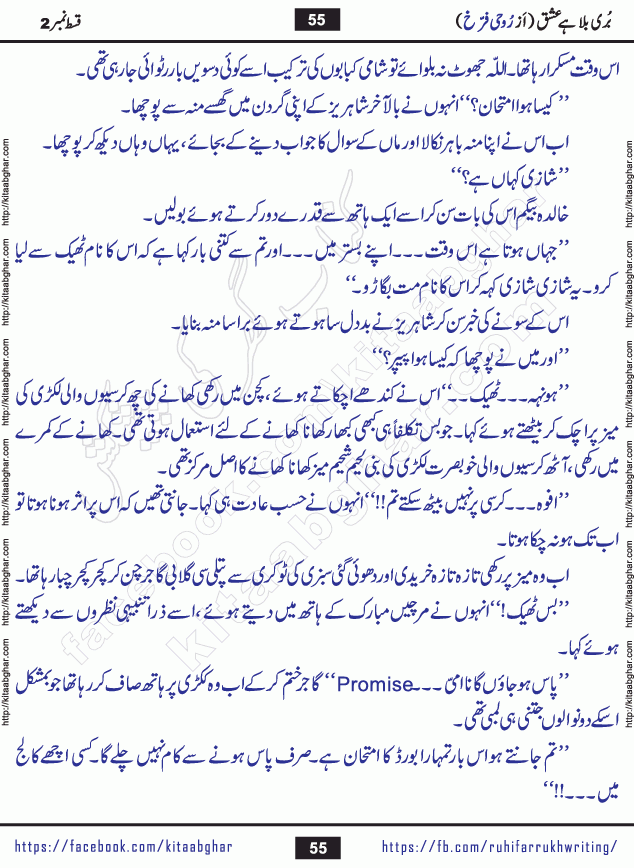 بُری بلا ہے عشق (از رُوحی فرّخ)
55
قسط نمبر 2
اس وقت مسکرا رہا تھا۔ اللّٰہ جھوٹ نہ بلوائے تو شامی کبابوں کی ترکیب اسے کوئی دسویں بار رٹوائی جا رہی تھی۔
’’کیسا ہوا امتحان؟‘‘ انہوں نے بالآخر شاہریز کے اپنی گردن میں گھسے منہ سے پوچھا۔
اب اس نے اپنا منہ باہر نکالا اور ماں کے سوال کا جواب دینے کے بجائے، یہاں وہاں دیکھ کر پوچھا۔
’’شازی کہاں ہے؟‘‘
خالدہ بیگم اس کی بات سن کر اسے ایک ہاتھ سے قدرے دور کرتے ہوئے بولیں۔
’’جہاں ہوتا ہے اس وقت۔۔۔اپنے بستر میں۔۔۔اور تم سے کتنی بار کہا ہے کہ اس کا نام ٹھیک سے لیا
کرو۔ یہ شازی شازی کہہ کر اس کا نام مت بگاڑو۔‘‘
اس کے سونے کی خبر سن کر شاہریز نے بددل سا ہوتے ہوئے برا سا منہ بنایا۔
’’اور میں نے پوچھا کہ کیسا ہوا پیپر؟‘‘
’’ہونہہ۔۔۔ٹھیک۔۔‘‘ اس نے کندھے اچکاتے ہوئے، کچن میں رکھی کھانے کی چھ کرسیوں والی لکڑی کی
میز پر اچک کر بیٹھتے ہوئے کہا۔ جو بس تکلفاً ہی کبھی کبھار کھانا کھانے کے لئے استعمال ہوتی تھی۔ کھانے کے کمرے
میں رکھی، آٹھ کرسیوں والی خوبصرت لکڑی کی بنی لحیم شحیم میز کھانا کھانے کا اصل مرکز تھی۔
’’افوہ۔۔۔کرسی پر نہیں بیٹھ سکتے تم!!‘‘ انہوں نے حسب عادت ہی کہا۔ جانتی تھیں کہ اس پر اثر ہونا ہوتا تو
اب تک ہو نہ چکا ہوتا۔
اب وہ میز پر رکھی تازہ تازہ خریدی اور دھوئی گئی سبزی کی ٹوکری سے پتلی سی گلابی گاجر چن کر کچر کچر چبا رہا تھا۔
’’بس ٹھیک!‘‘ انہوں نے مرچیں مبارک کے ہاتھ میں دیتے ہوئے، اسے ذرا تنبیہی نظروں سے دیکھتے
ہوئے کہا۔
’’پاس ہو جاؤں گا نا امی۔۔۔Promise‘‘ گاجر ختم کر کے اب وہ ککڑی پر ہاتھ صاف کر رہا تھا جو بمشکل
اسکے دو نوالوں جتنی ہی لمبی تھی۔
’’تم جانتے ہو اس بار تمہارا بورڈ کا امتحان ہے۔ صرف پاس ہونے سے کام نہیں چلے گا۔ کسی اچھے کالج
میں۔۔۔!!‘‘
http://kitaabghar.com
http://kitaabghar.com
http://kitaabghar.com
http://kitaabghar.com
http://kitaabghar.com
http://kitaabghar.com
http://kitaabghar.com
http://kitaabghar.com
http://kitaabghar.com
http://kitaabghar.com
http://kitaabghar.com
http://kitaabghar.com
کتاب گھر کی پیشکش
facebook.com/kitaabghar
kitaabghar.com
https://facebook.com/kitaabghar
55
https://fb.com/ruhifarrukhwriting/